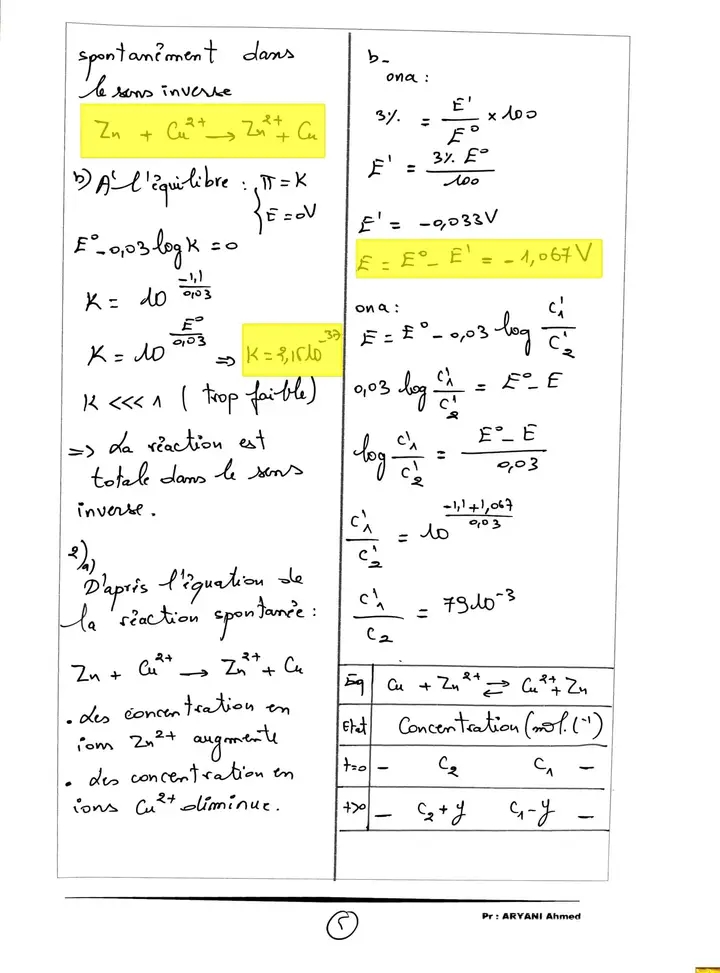 spontanément dans
le sens inverse
Zn + Cu²⁺ → Zn²⁺ + Cu
b) A l'équilibre : { π = K
E = 0V
E° - 0,03 log K = 0
K = 10^(-1,1/0,03)
K = 10^(E°/0,03) => K = 2,15 10⁻³⁷
K <<< 1 ( trop faible)
=> La réaction est
totale dans le sens
inverse.
2)a)
D'après l'équation de
la réaction spontanée :
Zn + Cu²⁺ → Zn²⁺ + Cu
. Les concentration en
ions Zn²⁺ augmente
. des concentration en
ions Cu²⁺ diminue.
b-
ona :
3% = E'/E° × 100
E' = 3%. E°/100
E' = -0,033V
E = E° - E' = -1,067 V
ona :
E = E° - 0,03 log C'₁/C'₂
0,03 log C'₁/C'₂ = E° - E
log C'₁/C'₂ = E° - E/0,03
C'₁/C'₂ = 10^(-1,1+1,067/0,03)
C'₁/C₂ = 79 10⁻³
Eq Cu + Zn²⁺ ⇌ Cu²⁺ + Zn
Etat Concentration (mol.L⁻¹)
t=0 - C₂ C₁ -
t>0 - C₂+y C₁-y -
Pr : ARYANI Ahmed
5